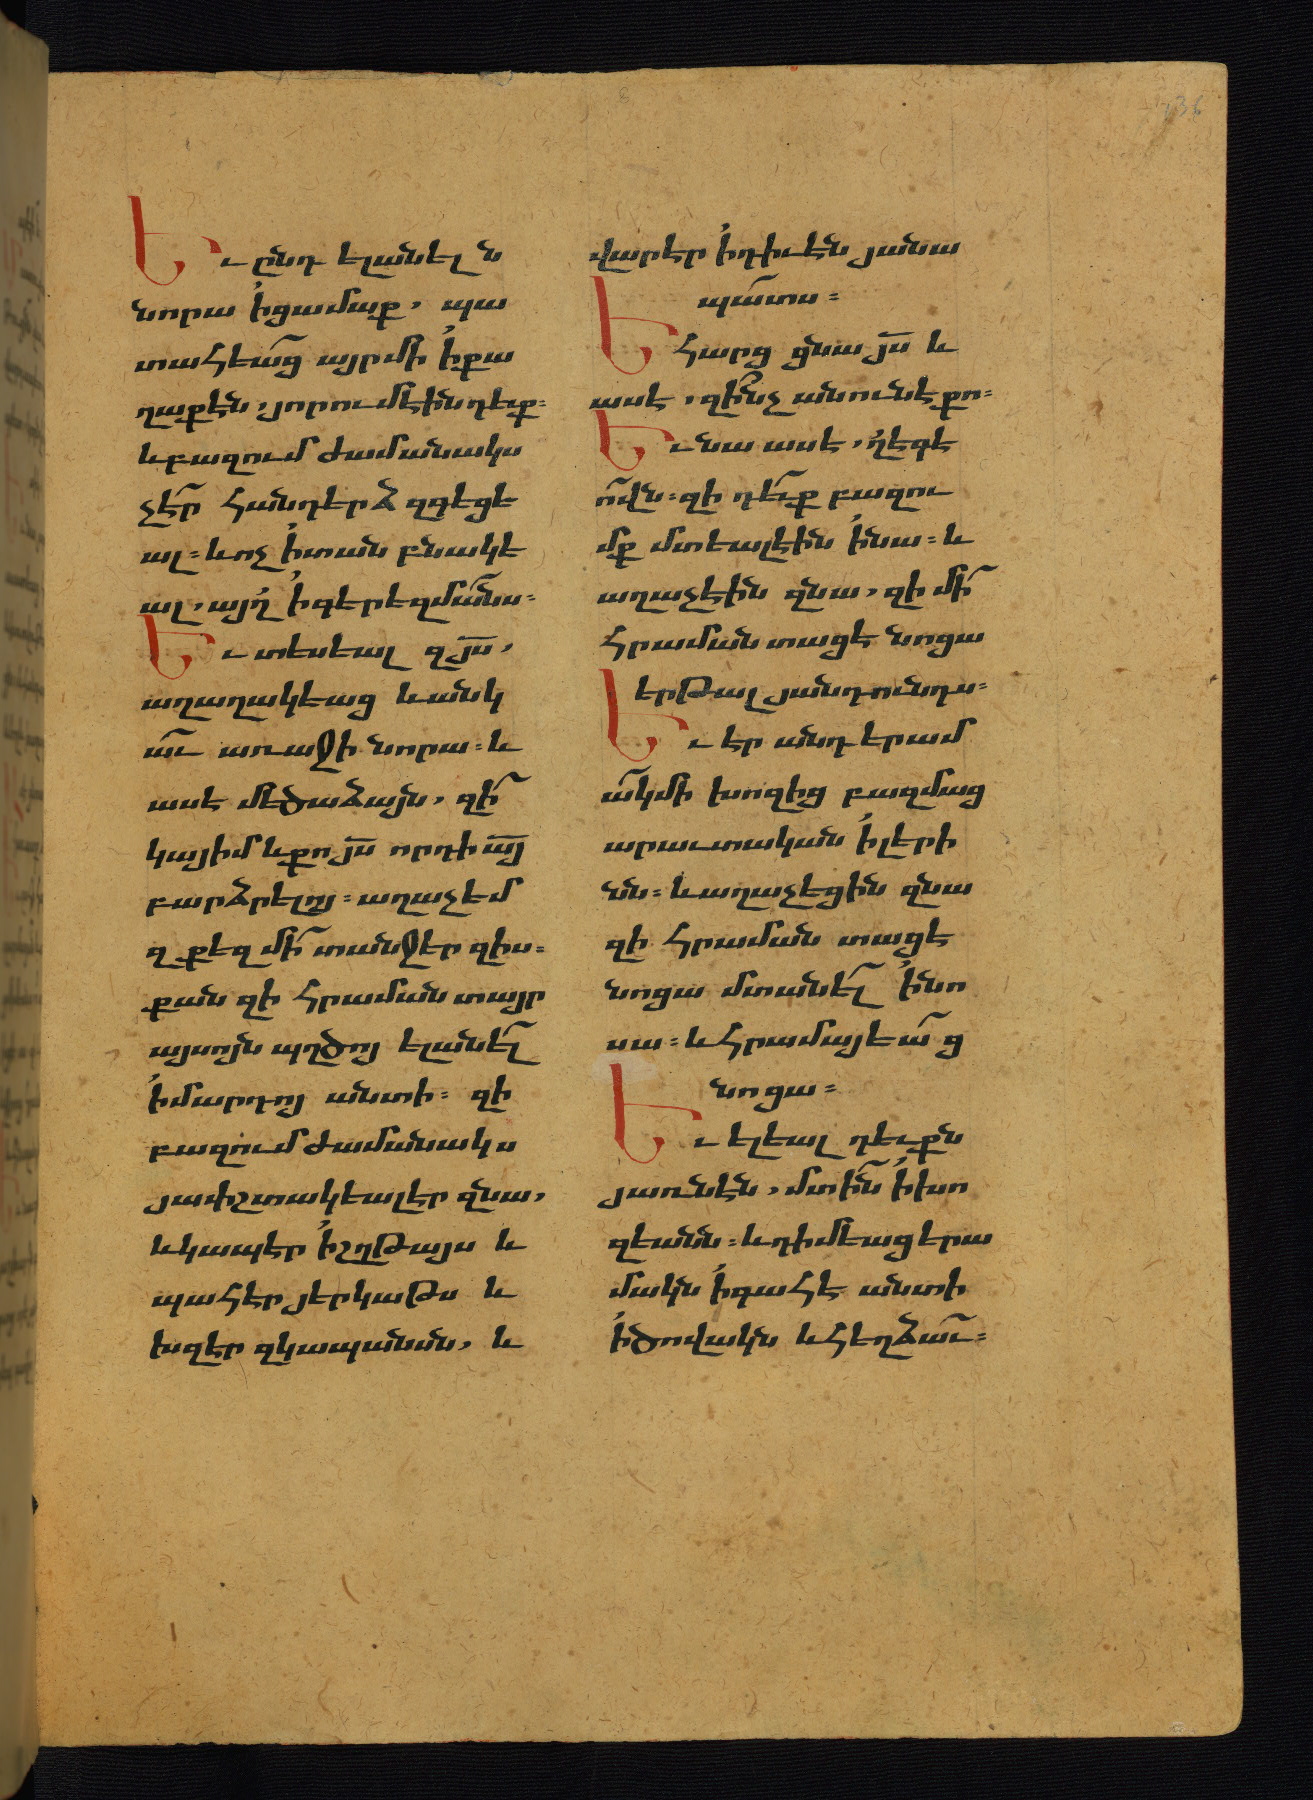 Եւ ընդ ելանել ն
նորա ՚ի ցամաք, պա
տահեաց այր մի ՚ի քա
ղաքէն, յորում էին դեւք։
և բազում ժամանակս
չէր հանդերձ զգեցե
ալ։ և ոչ ՚ի տան բնակե
ալ, այղ ՚ի գերեզմանս։
Եւ տեսեալ զյս,
աղաղակեաց և անկ
աւ առաջի նորա։ և
ասէ մեծաձայն, զի
կայ իմ և քո յս որդի այ
բարձրելոյ։ աղաչեմ
զքեզ մի տանջեր զիս։
քան զի հրաման տայր
այսոյն պղծոյ ելանել
՚ի մարդոյ անտի։ զի
բազում ժամանակս
յափշտակեալ էր զնա,
և կապէր ՚ի շղթայս և
պահէր յերկաթս և
խզէր զկապանսն, և
վարէր ՚ի դիւէն յանա
պատս։
Եհարց ցնա յս և
ասէ, զինչ անուն է քո։
Եւ նա ասէ, ղեգե
ովն։ զի դեւք բազու
մք մտեալ էին ՚ի նա։ և
աղաչէին զնա, զի մի
հրաման տացէ նոցա
երթալ յանդունդս։
Եւ էր անդ երամ
ակ մի խոզից բազմաց
արաւտական ՚ի լերի
նն։ և աղաչեցին զնա
զի հրաման տացէ
նոցա մտանել ՚ի նո
սա։ և հրամայեաց
նոցա։
Եւ ելեալ դեւքն
յառնէն, մտին ՚ի խո
զեանն։ և դիմեաց երա
մակն ՚ի գահէ անտի
՚ի ծովակն և հեղձաւ։